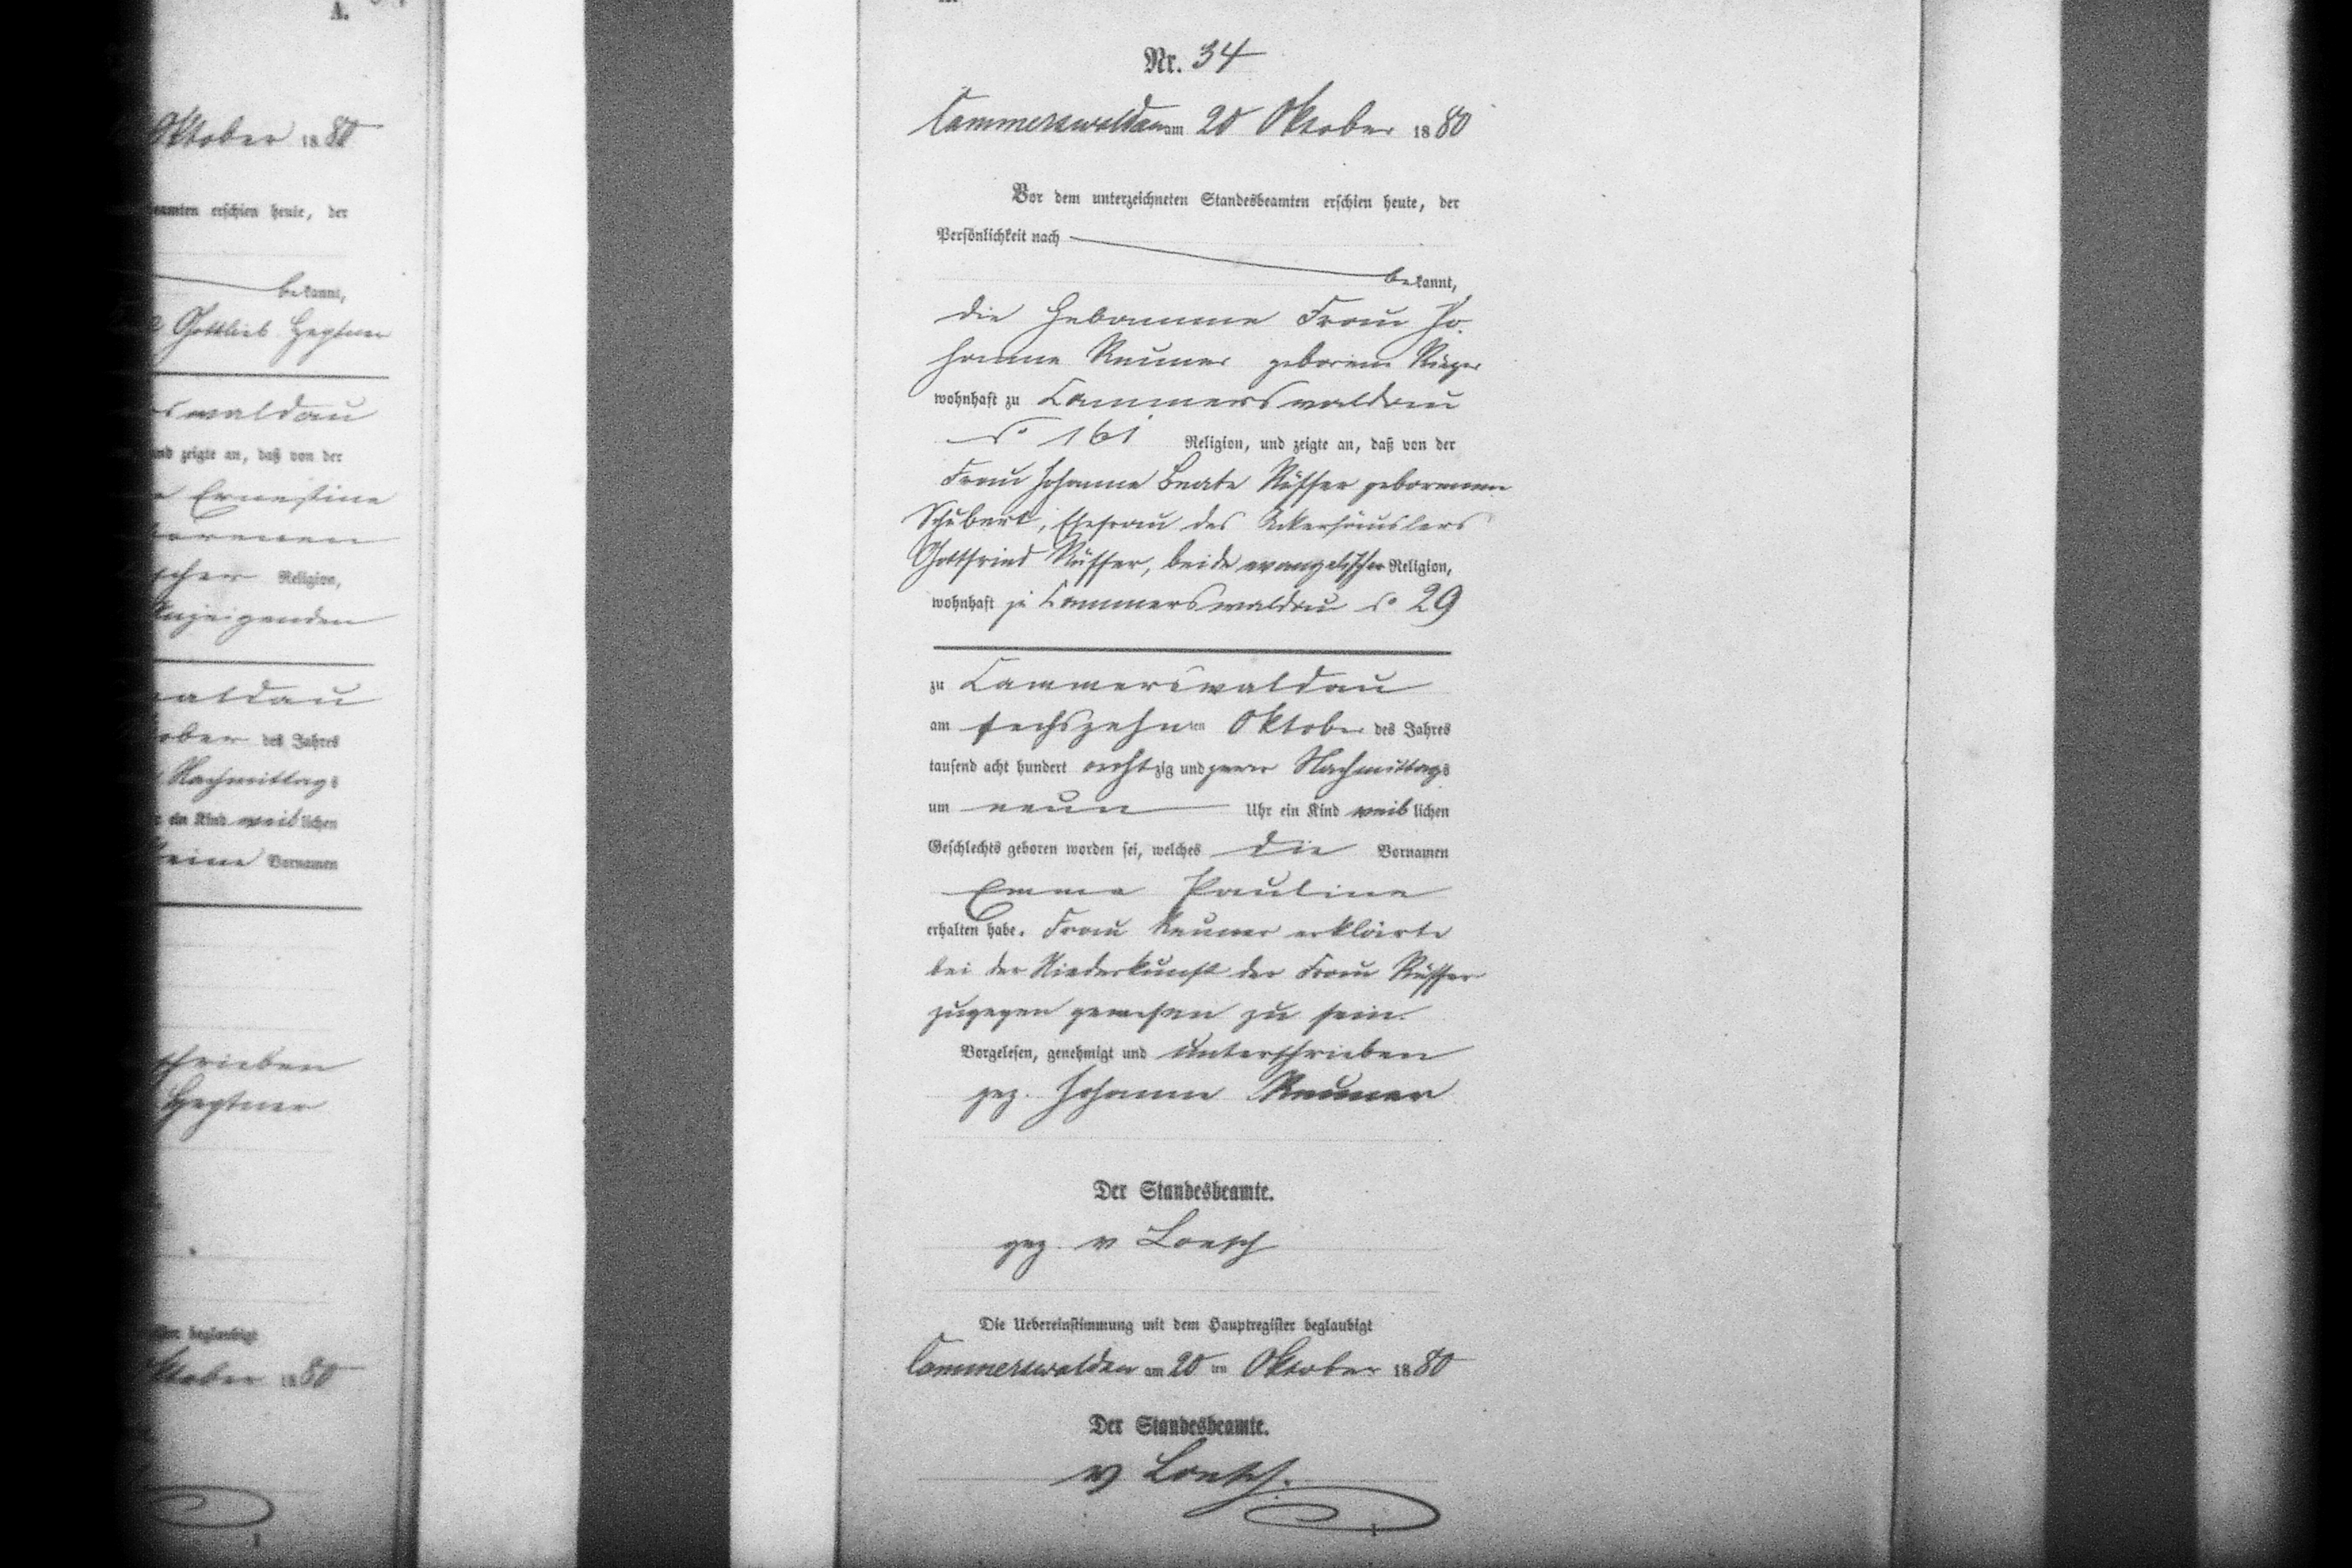 A.
Oktober 1880
beamten erschien heute, der
bekannt,
Gottlieb Heptner
swaldau
und zeigte an, daß von der
Ernestine
borenen
scher Religion,
Anzeigenden
waldau
ober des Jahres
Nachmittags
ein Kind weiblichen
keine Vornamen
schrieben
Heptner
beglaubigt
Oktober 1880
Nr. 34
Cammerswaldau am 20 Oktober 1880
Vor dem unterzeichneten Standesbeamten erschien heute, der
Persönlichkeit nach
bekannt,
die Hebamme Frau Jo-
hanne Reuner geborene Rüger
wohnhaft zu Cammerswaldau
No 161 Religion, und zeigte an, daß von der
Frau Johanne Beate Rüffer geborenen
Schubert, Ehefrau des Ackerhäuslers
Gottfried Rüffer, beide evangelischer Religion,
wohnhaft zu Cammerswaldau No 29
zu Cammerswaldau
am sechszehnten Oktober des Jahres
tausend acht hundert achtzig und zwar Nachmittags
um neun Uhr ein Kind weiblichen
Geschlechts geboren worden sei, welches die Vornamen
Emma Pauline
erhalten habe. Frau Reuner erklärte
bei der Niederkunft der Frau Rüffer
zugegen gewesen zu sein.
Vorgelesen, genehmigt und unterschrieben
gez. Johanne Reuner
Der Standesbeamte.
gez. v Loesch
Die Uebereinstimmung mit dem Hauptregister beglaubigt
Cammerswaldau am 20 ten Oktober 1880
Der Standesbeamte.
v Loesch.